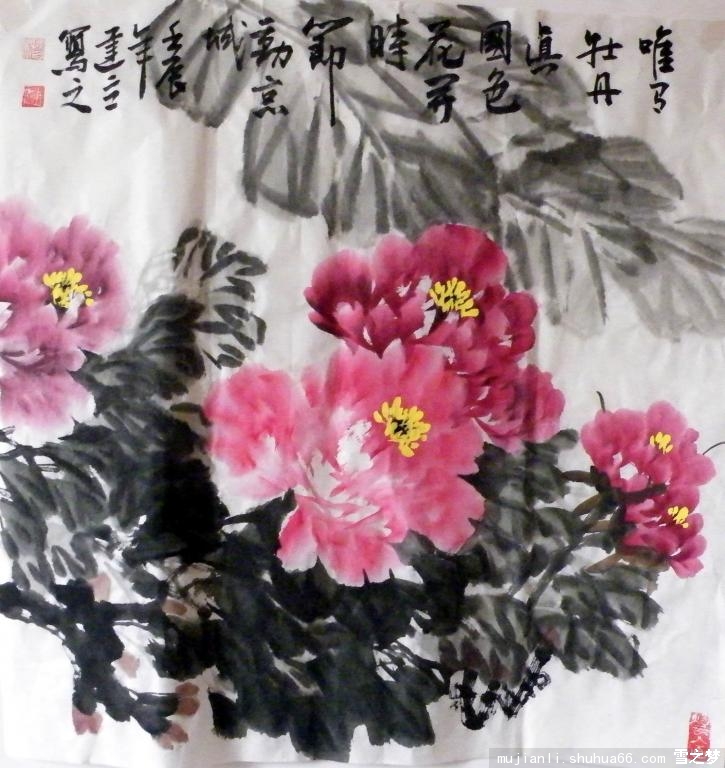 唯有
牡丹
眞
國色
花开
時
節
動京
城
壬辰
年
建立
寫之
mujianli.shuhua66.com 雪之梦